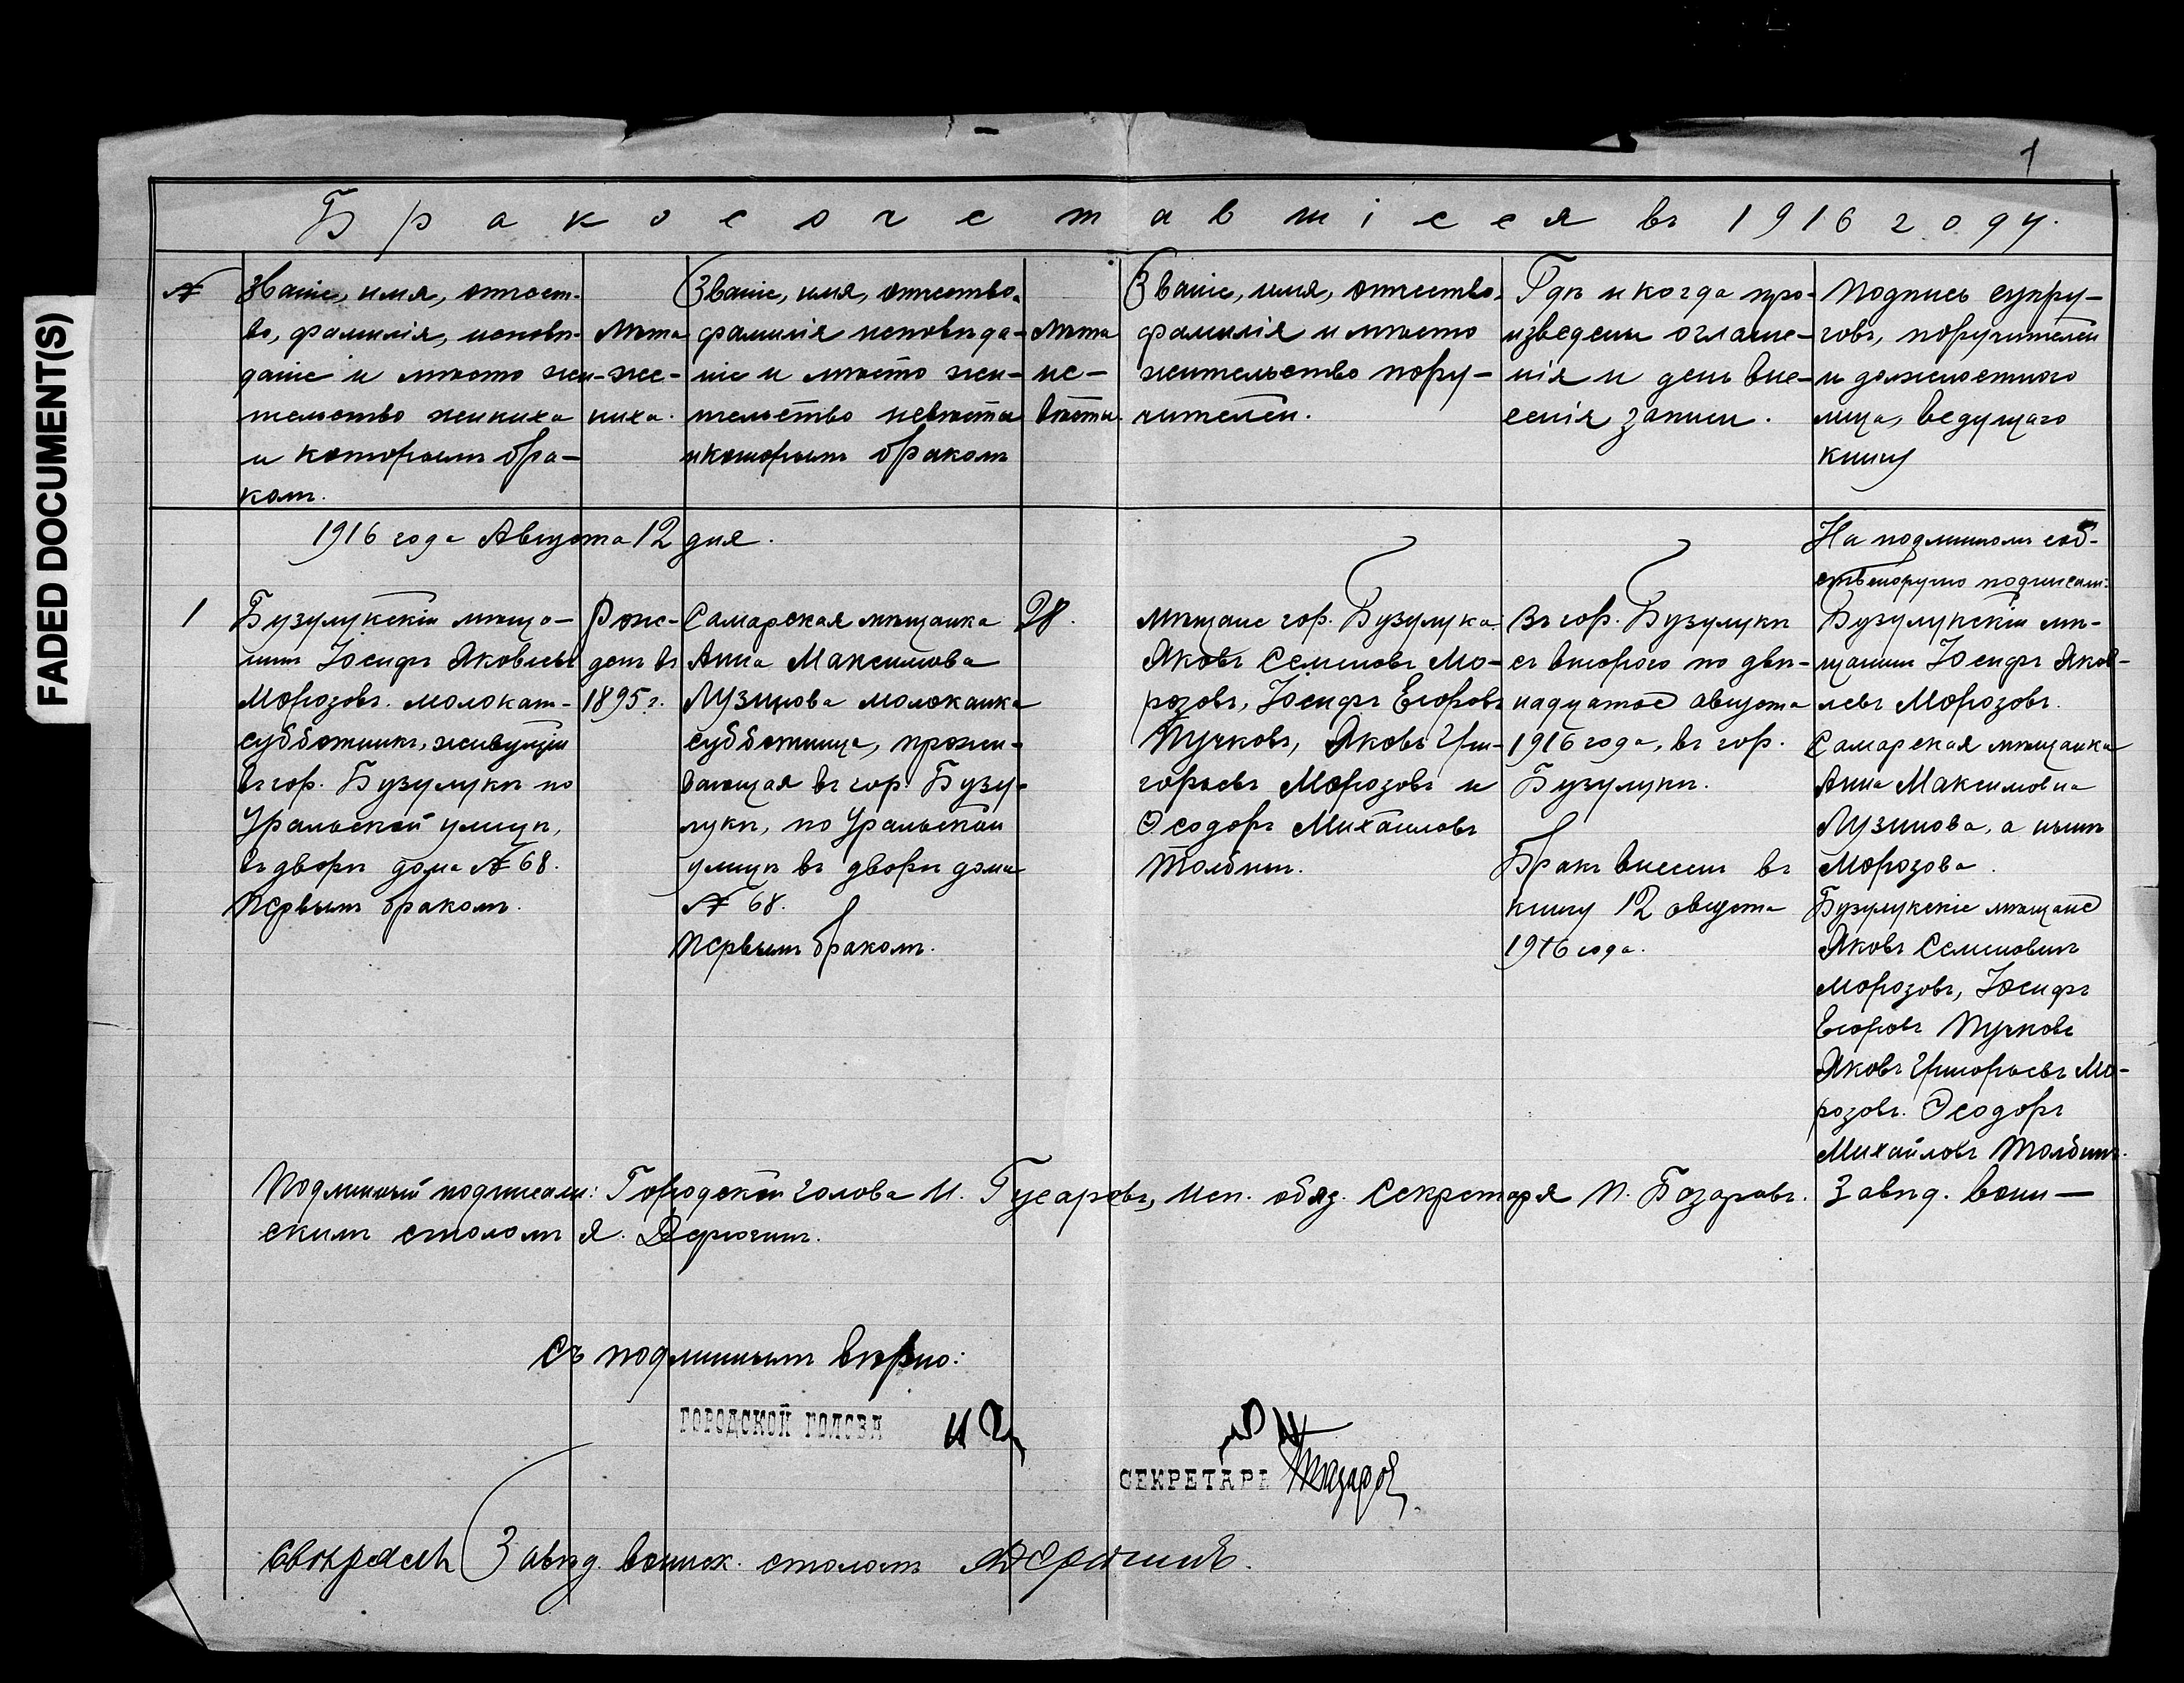 FADED DOCUMENT(S)
1
Бракосочетавшіеся въ 1916 году.
№
Званіе, имя, отчест-
во, фамилія, исповѣ-
даніе и мѣсто жи-
тельство жениха
и которымъ бра-
комъ.
Лѣта
же-
ниха.
Званіе, имя, отчество,
фамилія исповѣда-
ніе и мѣсто жи-
тельство невѣсты
и которымъ бракомъ
Лѣта
не-
вѣсты.
Званіе, имя, отчество,
фамилія и мѣсто
жительство пору-
чителей.
Гдѣ и когда про-
изведены оглаше-
нія и день вне-
сенія записи.
Подпись супру-
говъ, поручителей
и должностного
лица, ведущаго
книгу
1916 года Августа 12 дня.
1
Бузулукскій мѣща-
нинъ Іосифъ Яковлевъ
Морозовъ. молокан-
субботникъ, живущій
въ гор. Бузулукѣ по
Уральской улицѣ,
въ дворѣ дома № 68.
Первымъ бракомъ.
Рож-
денъ въ
1895 г.
Самарская мѣщанка
Анна Максимова
Лузинова молоканка
субботница, прожи-
вающая въ гор. Бузу-
лукѣ, по Уральской
улицѣ въ дворѣ дома
№ 68.
Первымъ бракомъ.
28.
Мѣщане гор. Бузулука:
Яковъ Семеновъ Мо-
розовъ, Іосифъ Егоровъ
Пучковъ, Яковъ Гри-
горьевъ Морозовъ и
Ѳеодоръ Михайловъ
Толбинъ.
Въ гор. Бузулукѣ
съ второго по двѣ-
надцатое августа
1916 года, въ гор.
Бузулукѣ.
Бракъ внесенъ въ
книгу 12 августа
1916 года.
На подлинномъ соб-
ственоручно подписали:
Бузулукскій мѣ-
щанинъ Іосифъ Яков-
левъ Морозовъ.
Самарская мѣщанка
Анна Максимовна
Лузинова, а нынѣ
Морозова.
Бузулукскіе мѣщане
Яковъ Семеновичъ
Морозовъ, Іосифъ
Егоровъ Пучковъ
Яковъ Григорьевъ Мо-
розовъ. Ѳеодоръ
Михайловъ Толбинъ.
Подлинный подписали: Городской голова И. Гусаровъ, Исп. обяз. Секретаря П. Базаровъ. Завѣд. воин-
скимъ столомъ Я. Дерюгинъ.
Съ подлиннымъ вѣрно:
ГОРОДСКОЙ ГОЛОВА
СЕКРЕТАРЬ
Свѣрялъ Завѣд. воинск. столомъ Дерюгинъ.